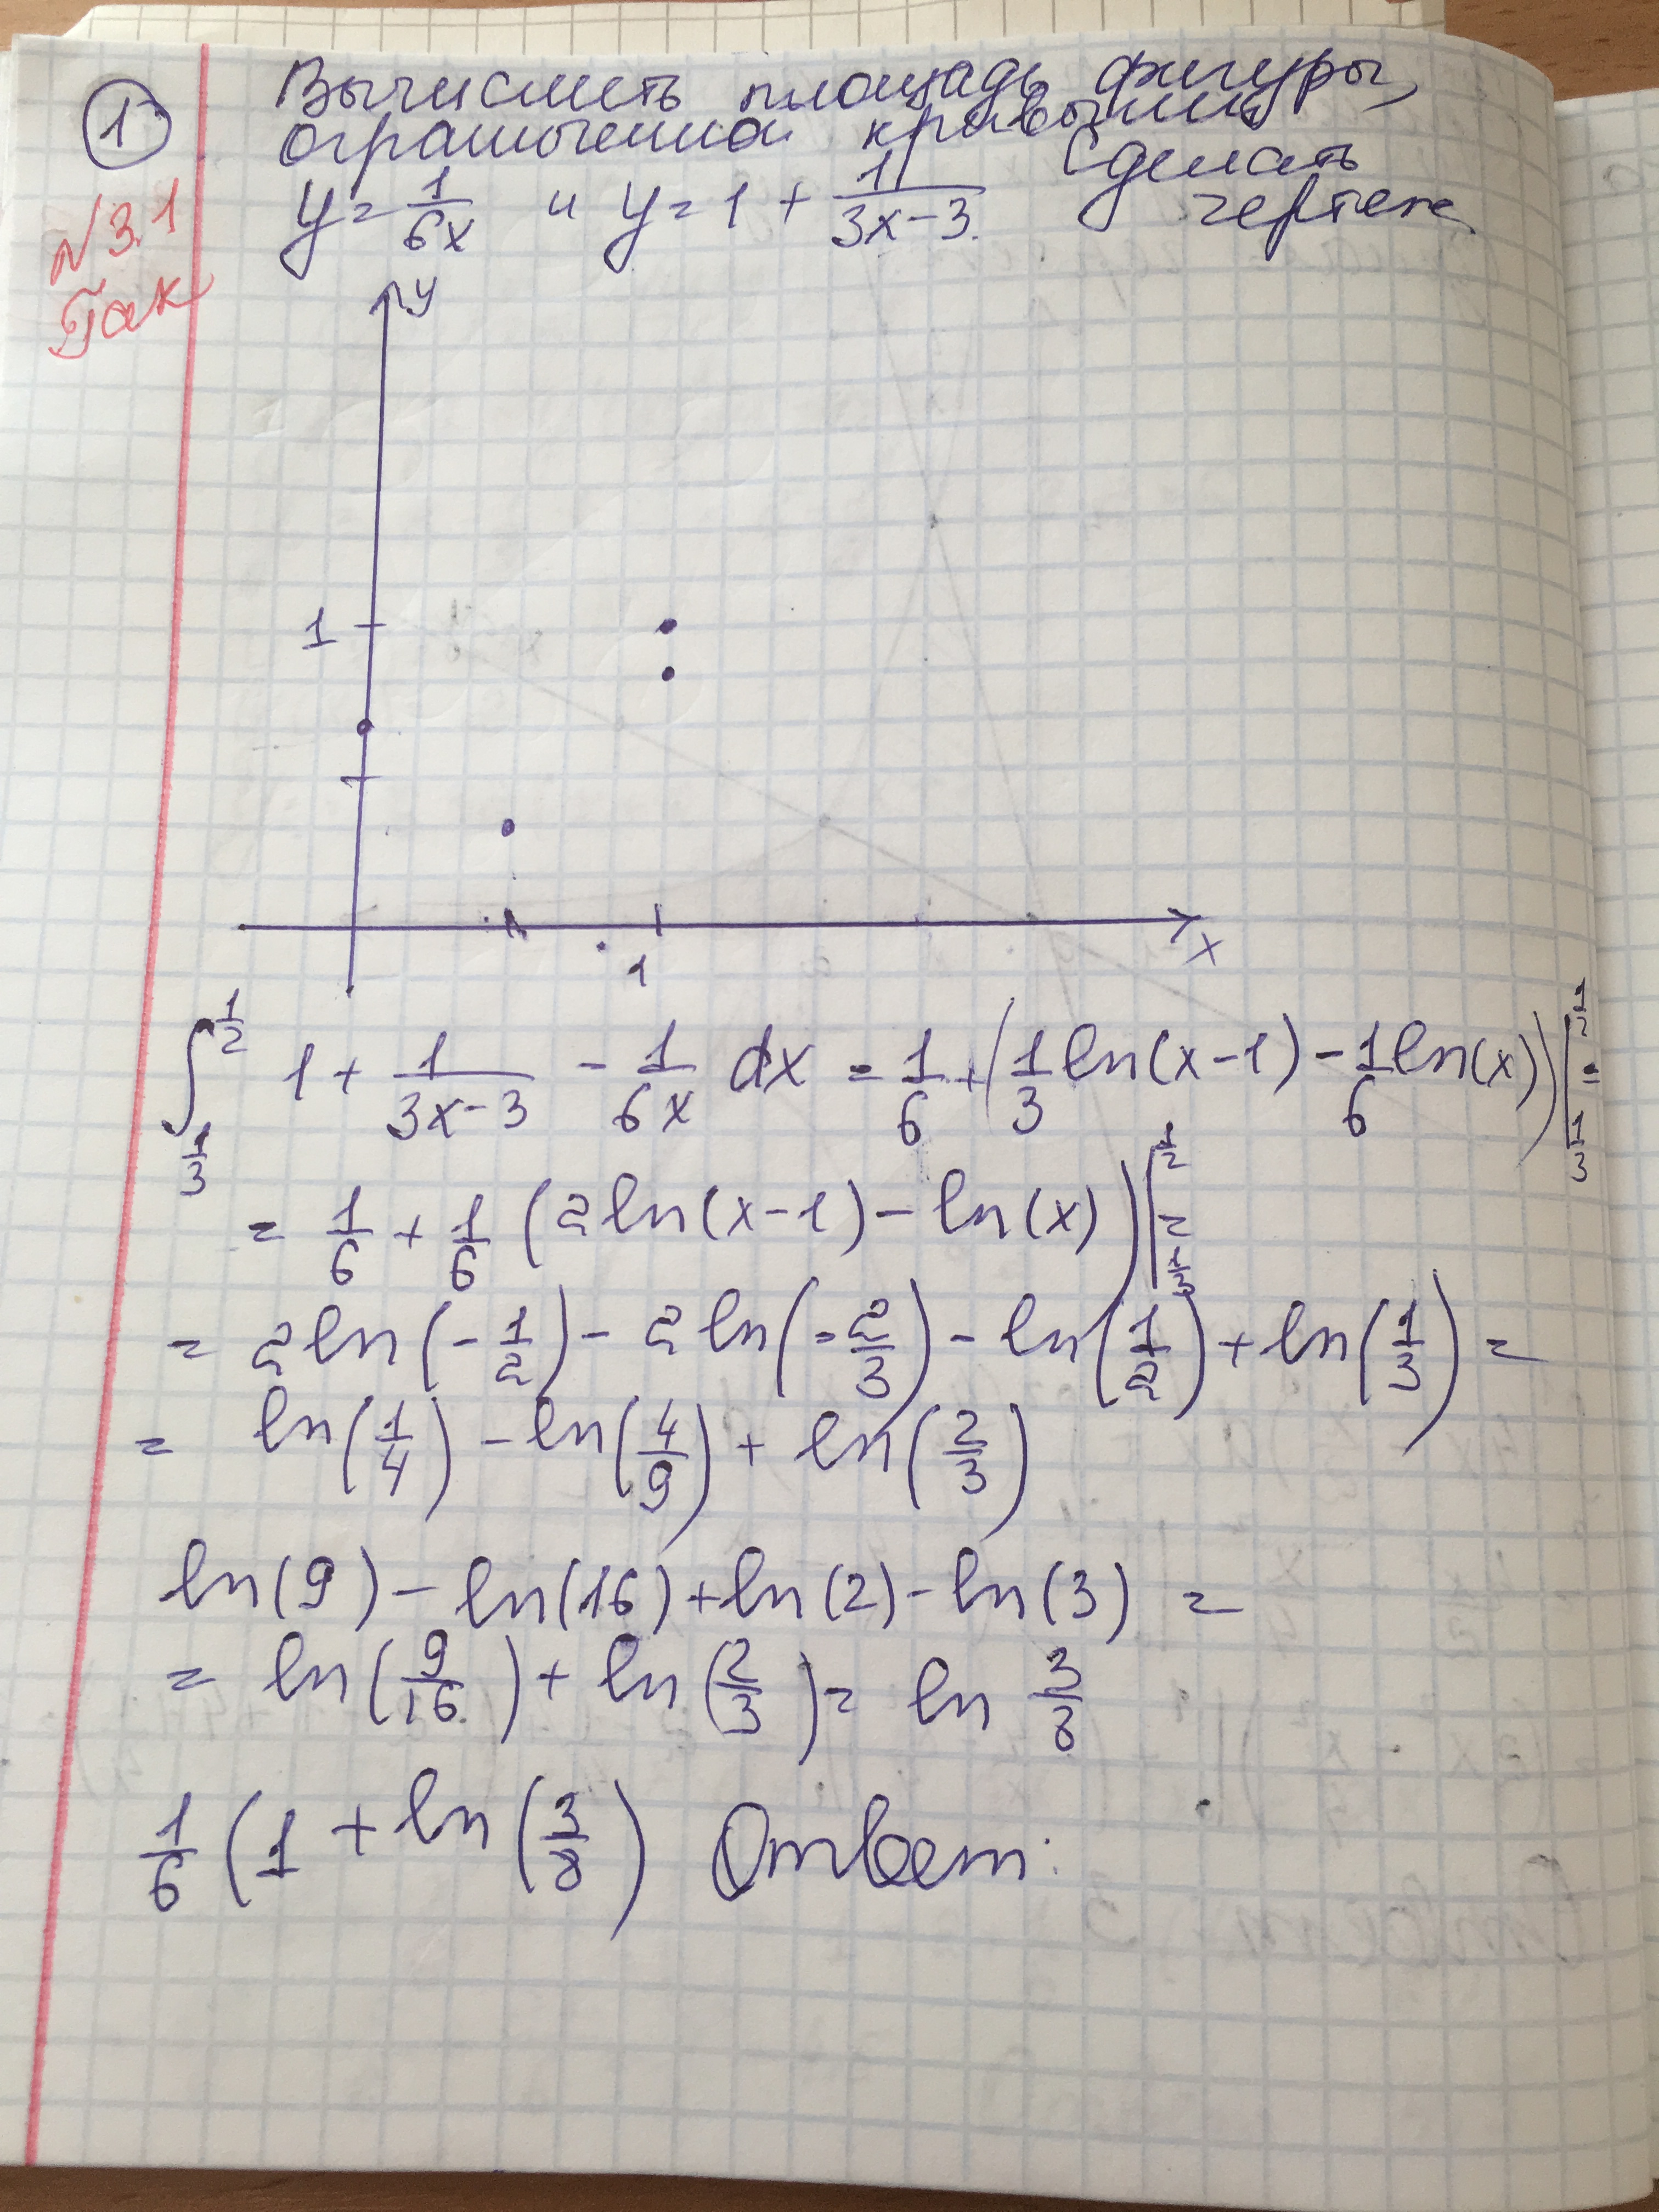 1
Вычислить площадь фигуры,
ограниченной кривыми
y = 1/(6x) и y = 1 + 1/(3x-3). Сделать
чертеж
N3.1
y
1
x
1
∫_{1/3}^{1/2} 1 + 1/(3x-3) - 1/(6x) dx = 1/6 + (1/3 ln(x-1) - 1/6 ln(x))|_{1/3}^{1/2} =
= 1/6 + 1/6 (2ln(x-1) - ln(x))|_{1/3}^{1/2} =
= 2ln(-1/2) - 2ln(-2/3) - ln(1/2) + ln(1/3) =
= ln(1/4) - ln(4/9) + ln(2/3)
ln(9) - ln(16) + ln(2) - ln(3) =
= ln(9/16) + ln(2/3) = ln 3/8
1/6 (1 + ln(3/8) Ответ: